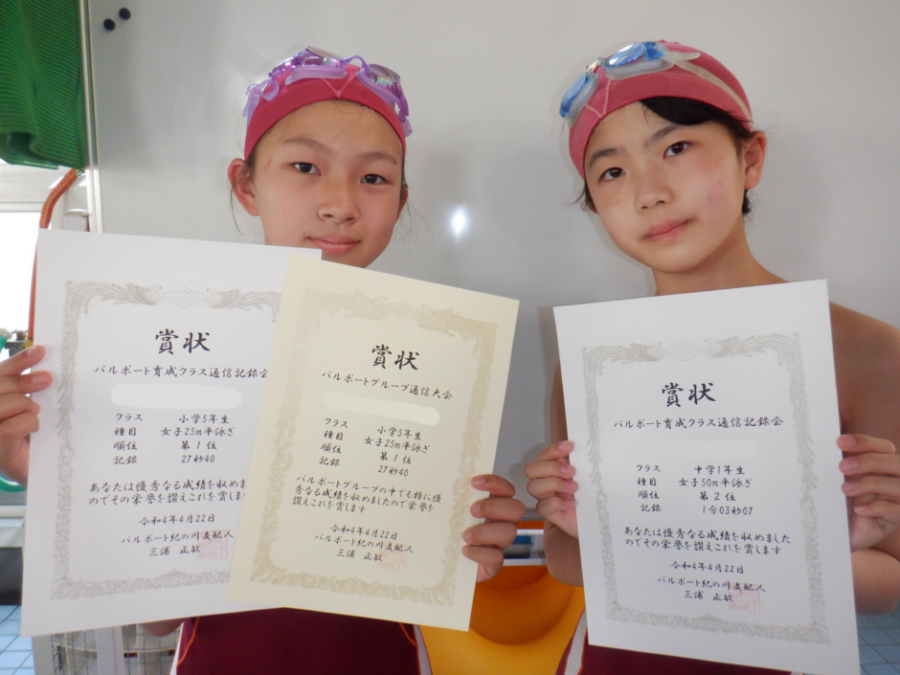 賞状
パルポート育成クラス通信記録会
クラス 小学5年生
種目 女子25m平泳ぎ
順位 第1位
記録 27秒40
あなたは優秀なる成績を収めま
のでその栄誉を讃えこれを賞しま
令和4年4月22日
パルポート紀の川支配人
三浦 正敏
賞状
パルポートグループ通信大会
クラス 小学5年生
種目 女子25m平泳ぎ
順位 第1位
記録 27秒40
パルポートグループの中でも特に優
秀なる成績を収めましたので栄誉を
讃えこれを賞します
令和4年4月22日
パルポート紀の川支配人
三浦 正敏
賞状
パルポート育成クラス通信記録会
クラス 中学1年生
種目 女子50m平泳ぎ
順位 第2位
記録 1分03秒07
あなたは優秀なる成績を収めました
のでその栄誉を讃えこれを賞します
令和4年4月22日
パルポート紀の川支配人
三浦 正敏